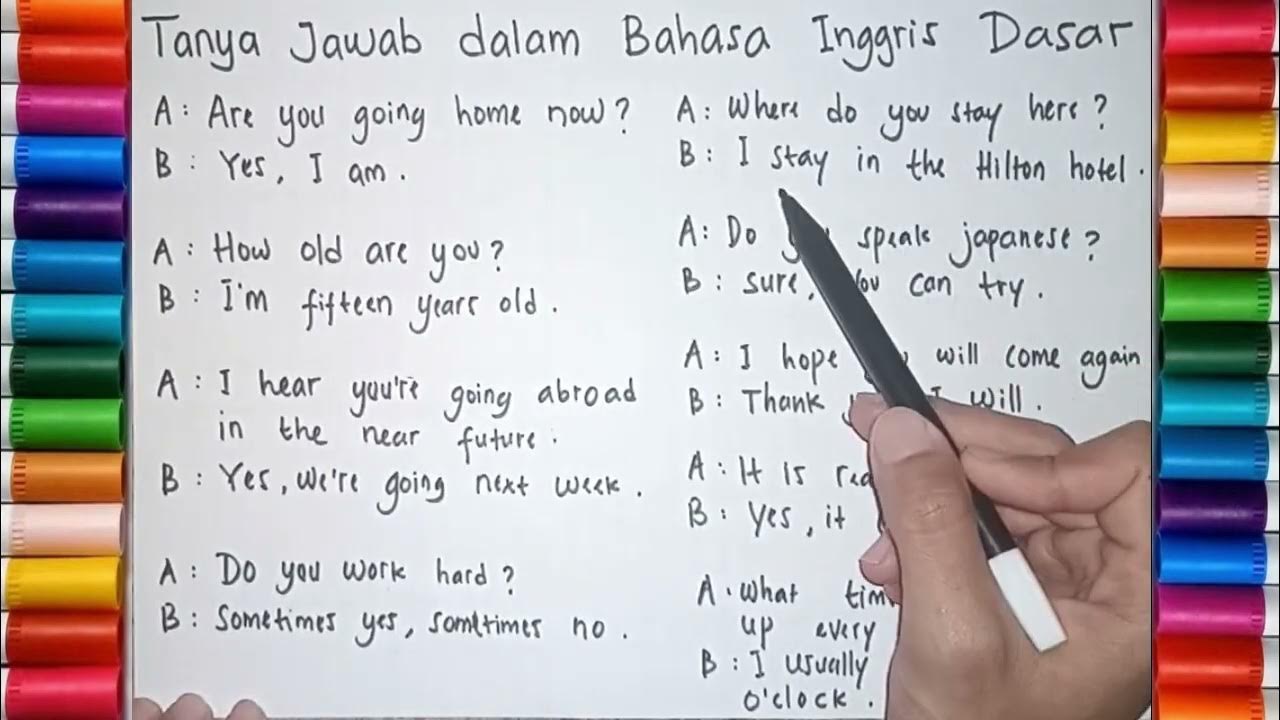 Tanya Jawab dalam Bahasa Inggris Dasar
A : Are you going home now?
B : Yes, I am.
A : How old are you?
B : I'm fifteen years old.
A : I hear you're going abroad
in the near future.
B : Yes, we're going next week.
A : Do you work hard?
B : Sometimes yes, sometimes no.
A : Where do you stay here?
B : I stay in the Hilton hotel.
A : Do speak japanese?
B : sure, can try.
A : I hope will come again
B : Thank I will.
A : It is
B : Yes, it
A . What
up every
B : I usually
o'clock.